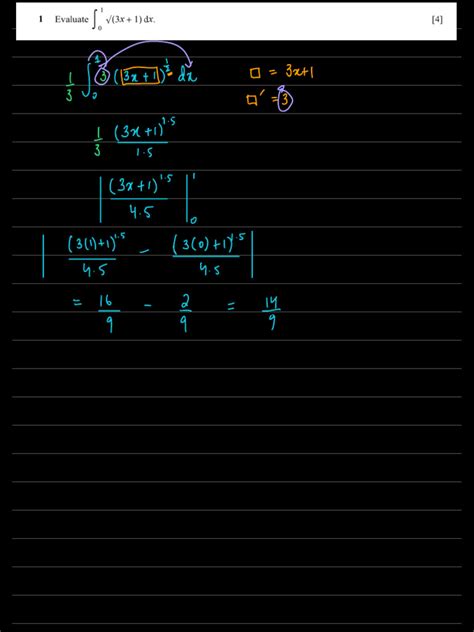 1 Evaluate ∫₀¹ √(3x + 1) dx. [4]
1/3 ∫₀¹ 3 (3x + 1)^(1/2) dx □ = 3x+1
□' = 3
1/3 (3x+1)^1.5 / 1.5
| (3x+1)^1.5 / 4.5 |₀¹
| (3(1)+1)^1.5 / 4.5 − (3(0)+1)^1.5 / 4.5 |
= 16/9 − 2/9 = 14/9